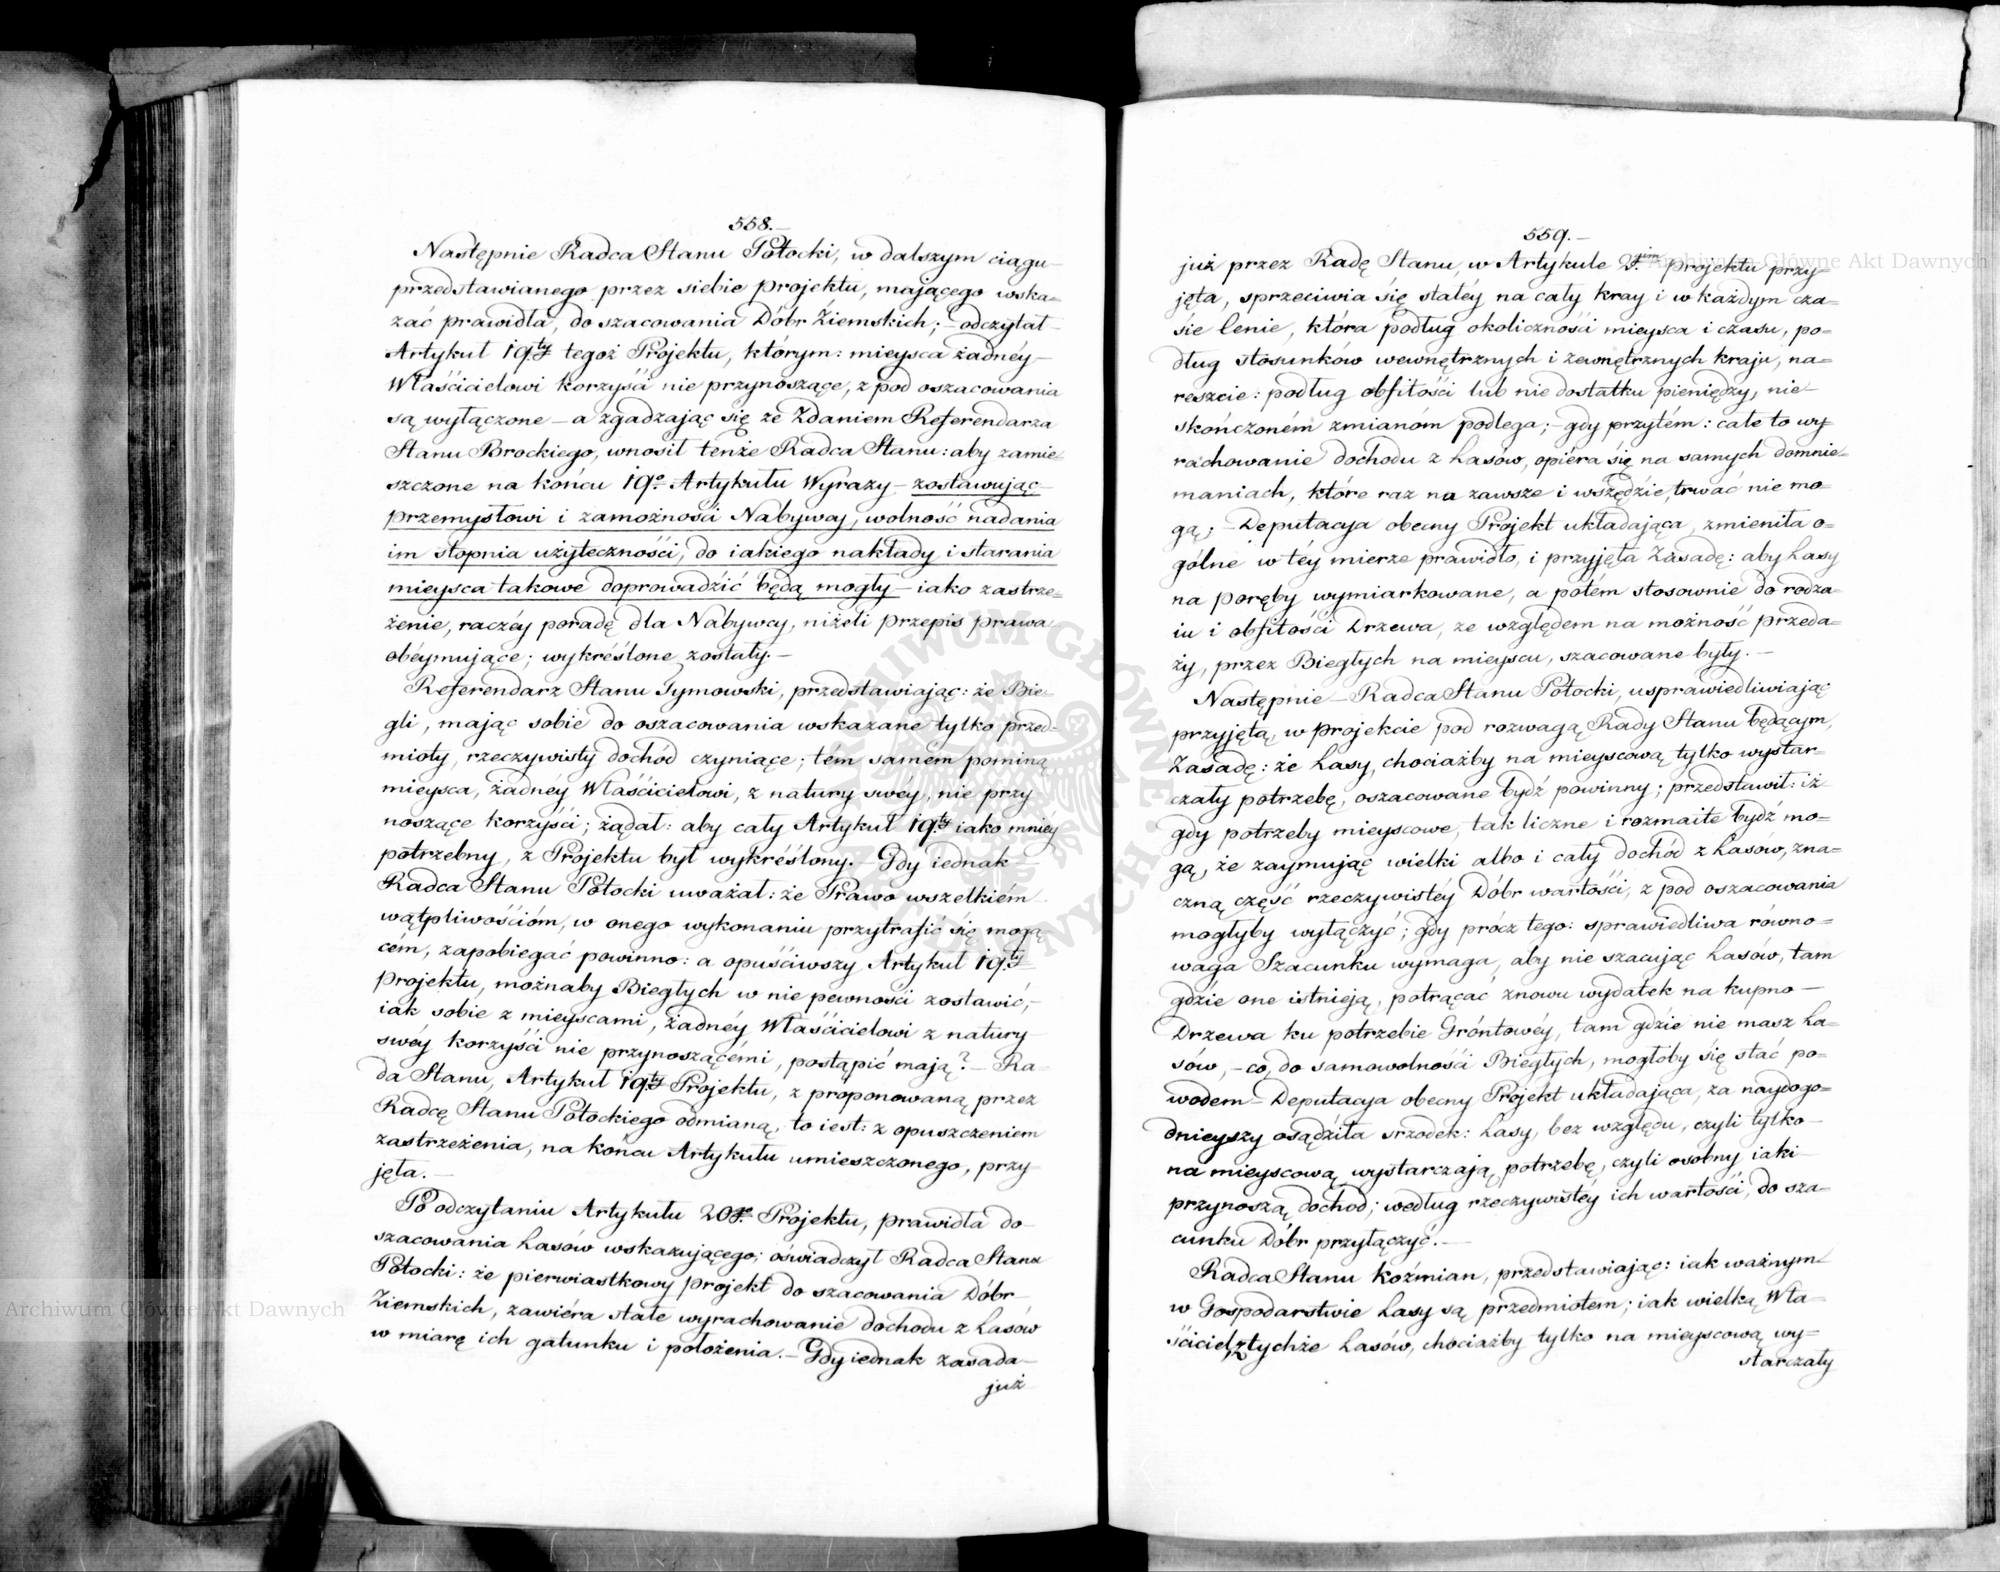 558.–
Następnie Radca Stanu Potocki, w dalszym ciągu
przedstawianego przez siebie projektu, maiącego wska=
zać prawidła, do szacowania Dóbr Ziemskich; – odczytał
Artykuł 19ty tegoż Projektu, którym: mieysca żadnéy
Właścicielowi korzyści nie przynoszące, z pod oszacowania
są wyłączone – a zgadzaiąc się ze Zdaniem Referendarza
Stanu Brockiego, wnosił tenże Radca Stanu: aby zamie=
szczone na końcu 19º Artykułu Wyrazy – zostawuiąc
przemysłowi i zamożności Nabywcy, wolność nadania
im stopnia użyteczności, do iakiego nakłady i starania
mieysca takowe doprowadzić będą mogły – iako zastrze=
żenie, raczéy poradę dla Nabywcy, niżeli przepis prawa
obéymuiące; wykréślone zostały. –
Referendarz Stanu Tymowski, przedstawiaiąc: że Bie=
gli, maiąc sobie do oszacowania wskazane tylko przed=
mioty, rzeczywisty dochód czyniące; tém samém pominą
mieysca, żadnéy Właścicielowi, z natury swéy, nie przy
noszące korzyści; żądał: aby cały Artykuł 19ty iako mniéy
potrzebny, z Projektu był wykréślony. – Gdy iednak
Radca Stanu Potocki uważał: że Prawo wszelkiém
wątpliwościóm, w onego wykonaniu przytrafić się mogą
cém, zapobiegać powinno: a opuściwszy Artykuł 19ty
Projektu, możnaby Biegłych w nie pewności zostawić,
iak sobie z mieyscami, żadnéy Właścicielowi z natury
swéy korzyści nie przynoszącémi, postąpić maią? – Ra=
da Stanu, Artykuł 19ty Projektu, z proponowaną przez
Radcę Stanu Potockiego odmianą, to iest: z opuszczeniem
zastrzeżenia, na końcu Artykułu umieszczonego, przy
jęła. –
Po odczytaniu Artykułu 20go Projektu, prawidła do
szacowania Lasów wskazuiącego; oświadczył Radca Stanu
Potocki: że pierwiastkowy projekt do szacowania Dóbr
Ziemskich, zawiéra stałe wyrachowanie dochodu z Lasów
w miarę ich gatunku i położenia. – Gdy iednak zasada
już
559.–
już przez Radę Stanu, w Artykule projektu przy=
jęta, sprzeciwia się statéy na cały kray i w każdym cza=
sie Cenie, która podług okoliczności mieysca i czasu, po=
dług stosunków wewnętrznych i zewnętrznych kraju, na=
reszcie: podług obfitości lub nie dostatku pieniędzy, nie
skończoném zmianóm podlega; – gdy przytém: całe to wy
rachowanie dochodu z Lasów, opiéra się na samych domnie=
maniach, które raz na zawsze i wszędzie, trwać nie mo=
gą; – Deputacya obecny Projekt układaiąca, zmieniła o=
gólne w téy mierze prawidło, i przyjęła Zasadę: aby Lasy
na poręby wymiarkowane, a potém stosownie do rodza=
iu i obfitości Drzewa, ze względem na możność przeda=
ży, przez Biegłych na mieyscu, szacowane były. –
Następnie – Radca Stanu Potocki, usprawiedliwiaiąc
przyjętą, w projekcie pod rozwagą Rady Stanu będącym,
Zasadę: że Lasy, chociażby na mieyscową tylko wystar=
czały potrzebę, oszacowane bydź powinny; przedstawił: iż
gdy potrzeby mieyscowe, tak liczne i rozmaite bydź mo=
gą, że zaymuiąc wielki albo i cały dochód z Lasów, zna=
czną część rzeczywistéy Dóbr wartości, z pod oszacowania
mogłyby wyłączyć; gdy prócz tego: sprawiedliwa równo=
waga Szacunku wymaga, aby nie szacuiąc Lasów, tam
gdzie one istnieią, potrącać znowu wydatek na kupno –
Drzewa ku potrzebie Gróntowéy, tam gdzie nie masz La=
sów, – co, do samowolności Biegłych, mogłoby się stać po=
wodem – Deputacya obecny Projekt układaiąca, za naydogo=
dnieyszy osądziła srzodek: Lasy, bez względu, czyli tylko –
na mieyscową wystarczaią, potrzebę, czyli osobny iaki
przynoszą dochód; według rzeczywistéy ich wartości, do sza=
cunku Dóbr przyłączyć. –
Radca Stanu Koźmian, przedstawiaiąc: iak ważnym
w Gospodarstwie Lasy są przedmiotem; iak wielką Wła=
ściciel, z tychże Lasów, chociażby tylko na mieyscową wy=
starczały